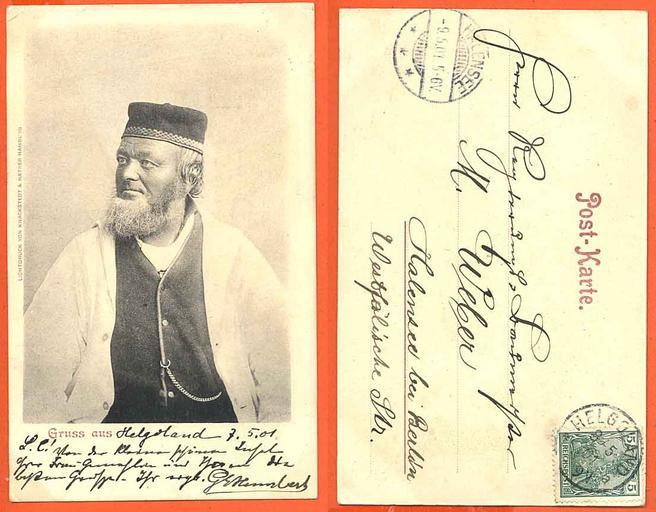 LICHTDRUCK VON KNACKSTEDT & NÄTHER HAMBURG
Gruss aus Helgoland 7.5.01.
L. C.! Von der kleinen schönen Insel
Ihrer Frau Gemahlin und Ihnen die
besten Grüsse - Ihr ergb.
HALENSEE
-9.5.01. 5-6V.
Post-Karte.
Herrn
M. Weber
Halensee bei Berlin
Westfälische Str.
HELGOLAND
5 REICHSPOST 5